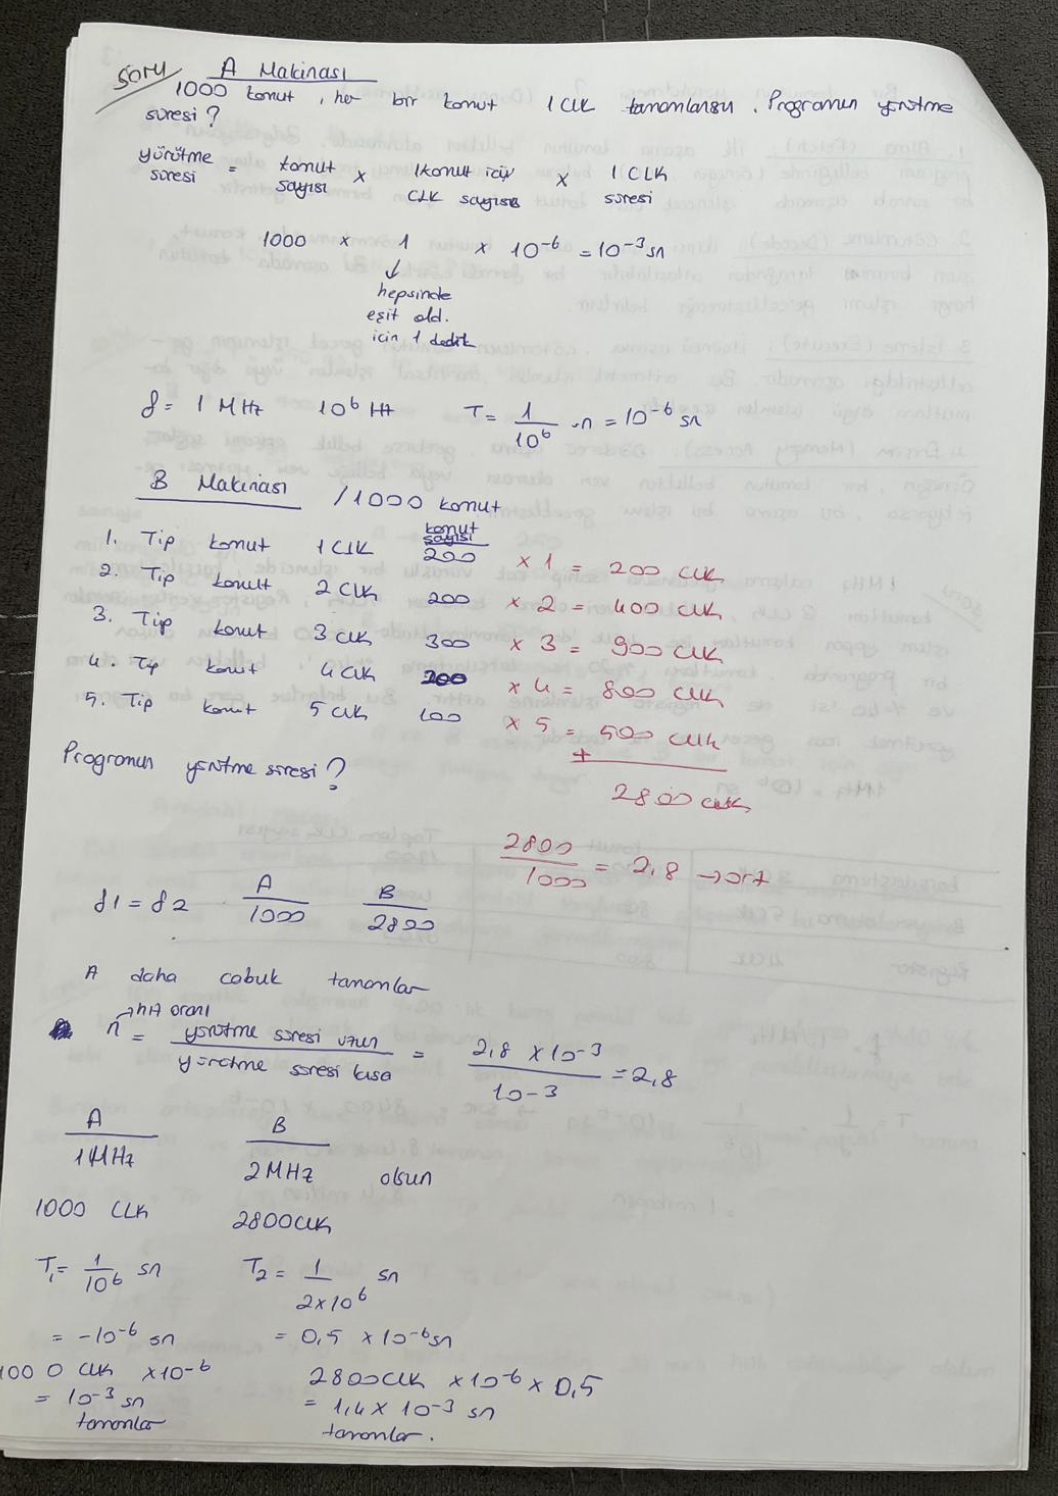 SORU
A Makinası
1000 komut, her bir komut 1 CLK tamamlansın. Programın yürütme
süresi?
yürütme süresi = komut sayısı x 1 komut için CLK sayısı x 1 CLK süresi
1000 x 1 x 10⁻⁶ = 10⁻³ sn
↓
hepsinde
eşit old.
için 1 dedik
f = 1 MHz 10⁶ Hz T = 1/10⁶ sn = 10⁻⁶ sn
B Makinası /1000 komut
komut
sayısı
1. Tip komut 1 CLK 200 x 1 = 200 CLK
2. Tip komut 2 CLK 200 x 2 = 400 CLK
3. Tip komut 3 CLK 300 x 3 = 900 CLK
4. Tip komut 4 CLK 200 x 4 = 800 CLK
5. Tip komut 5 CLK 100 x 5 = 500 CLK
+
2800 CLK
Programın yürütme süresi?
2800/1000 = 2,8 → ort
f1 = f2 A/1000 B/2800
A daha cabuk tamamlar
→ hız oranı
n = yürütme süresi uzun / yürütme süresi kısa = 2,8 x 10⁻³ / 10⁻³ = 2,8
A B
1 MHz 2 MHz olsun
1000 CLK 2800 CLK
T₁ = 1/10⁶ sn T₂ = 1/2x10⁶ sn
= -10⁻⁶ sn = 0,5 x 10⁻⁶ sn
1000 CLK x10⁻⁶ 2800 CLK x10⁻⁶ x 0,5
= 10⁻³ sn = 1,4 x 10⁻³ sn
tamamlar tamamlar.